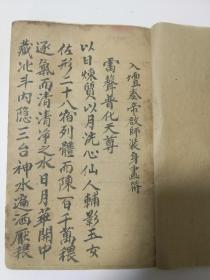 入壇叅帝啟師裝身畫符
雷聲普化天尊
以日煉質以月洗心仙人輔影玉女
佐形二十八宿列體而陳百千萬穢
逐氣而清清净之水日月華開中
藏北斗内隐三台神水遍洒厭穢